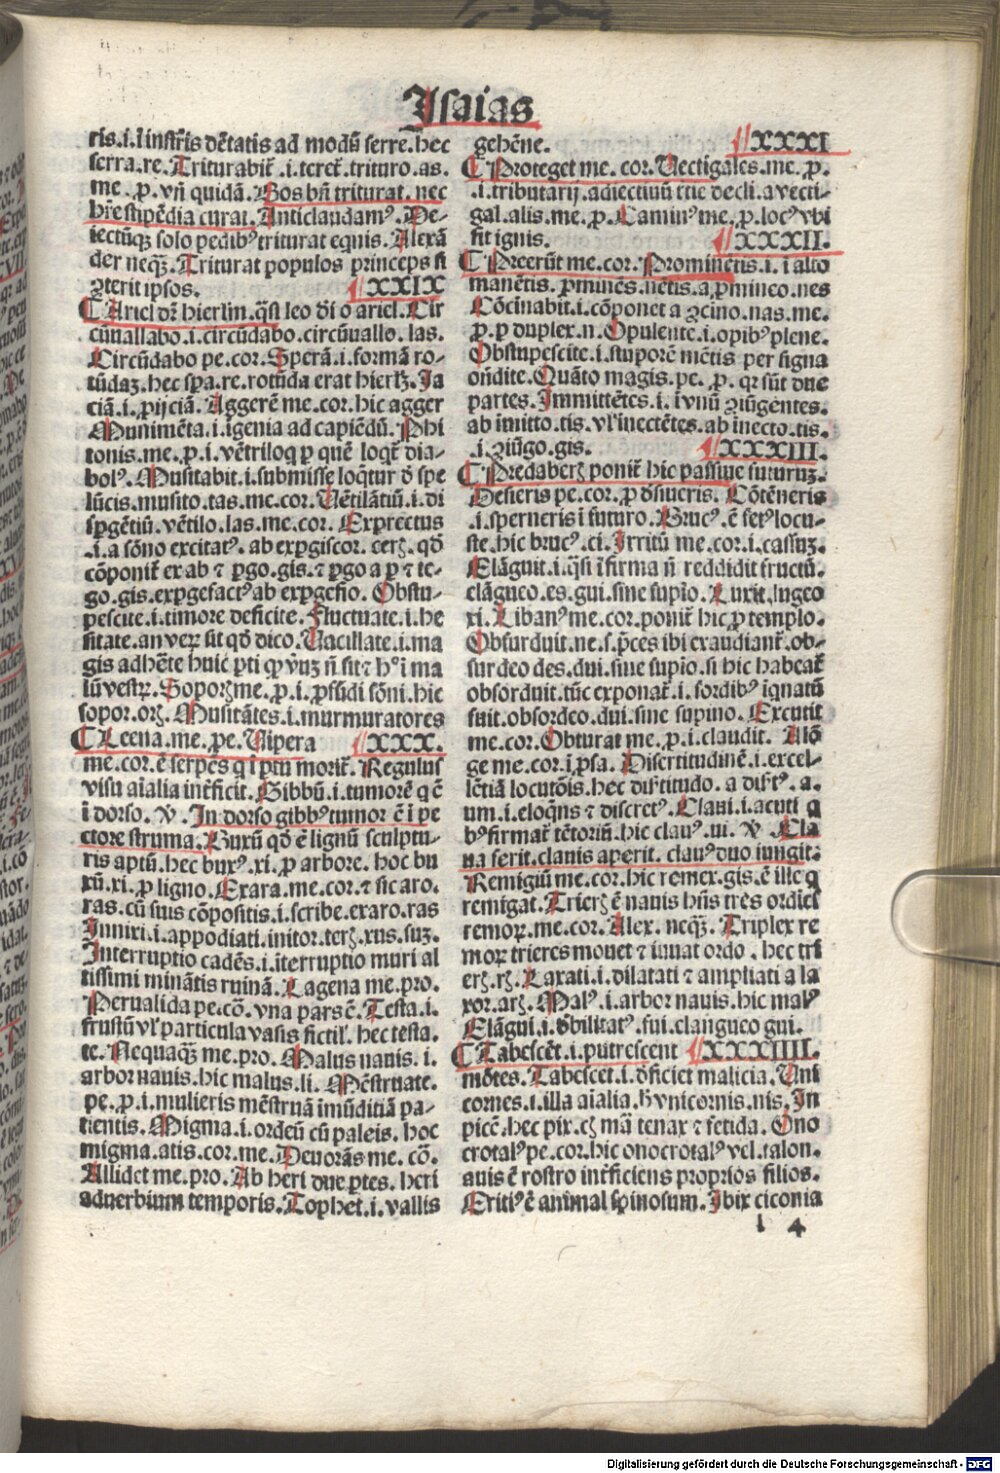 Isaias
ris.i.ĩ instr̃is dẽtatis ad modũ serre.hec
serra.re.Triturabit̃.i.teret̃.trituro.as.
me.p.vñ quidã.Bos bñ triturat.nec
hr̃e stipẽdia curat.Anticlaudamꝰ.De-
iectũqꝫ solo pedibꝰ triturat equis.Alexã
der neqꝫ.Triturat populos princeps si
ꝯterit ipsos. XXIX
Ariel dr̃ hierlm̃.q̃si leo dĩ o ariel.Cir
cũuallabo.i.circũdabo.circũuallo.las.
Circũdabo pe.cor.Sperã.i.formã ro-
tũdaꝫ.hec spa.re.rotũda erat hierlꝫ.Ja
ciã.i.ꝓijciã.Aggerẽ me.cor.hic agger
Munimẽta.i.ĩgenia ad capiẽdũ.Phi
tonis.me.p.i.vẽtriloq̃ p quẽ loqt̃ dia-
bolꝰ.Musitabit.i.submisse loq̃tur ð spe
lũcis.musito.tas.me.cor.Uẽtilãtiũ.i.di
spgẽtiũ.vẽtilo.las.me.cor. Exprectus
.i.a sõno excitatꝰ.ab expgiscor.cerꝫ.qð
cõponit̃ ex ab ⁊ pgo.gis.⁊ pgo a p ⁊ te-
go.gis.expgefactꝰ ab expgefio. Obstu-
pescite.i.timore deficite.Fluctuate.i.he
sitate.an veꝝ sit qð dico.Uacillate.i.ma
gis adhẽte huic pti qꝫ vnꝫ ñ sit ⁊ hꝰ i ma
lũ vestꝝ.Soporꝫ me.p.i.ꝓfũdi sõni.hic
sopor.orꝫ.Musitãtes.i.murmuratores
Leena.me.pe.Uipera XXX.
me.cor.ẽ serpẽs q̃ ĩ ptu morit̃.Regulus
visu aĩalia int̃ficit.Gibbũ.i.tumorẽ q̃ ẽ
ĩ dorso. v̾. In dorso gibbꝰ tumor ẽ ĩ pe
ctore struma.Buxũ qð ẽ lignũ sculptu-
ris aptũ.hec buxꝰ.xi.p arbore.hoc bu
xũ.xi.ꝓ ligno.Exara.me.cor.⁊ sic aro.
ras.cũ suis cõpositis.i.scribe.exaro.ras
Innixi.i.appodiati.initor.terꝫ.xus.suꝫ.
Interruptio cadẽs.i.ĩterruptio muri al
tissimi minãtis ruinã.Lagena me.pro.
Perualida pe.cõ.vna pars ẽ.Testa.i.
frustũ vl̃ particula vasis fictil̃.hec testa.
te.Nequaq̃ꝫ me.pro.Malus nauis.i.
arbor nauis.hic malus.li.Mẽstruate.
pe.p.i.mulieris mẽstruã imũditiã pa-
tientis.Migma.i.ordeũ cũ paleis.hoc
migma.atis.cor.me.Deuorãs me.cõ.
Allidet me.pro.Ab heri due ptes.heri
aduerbium temporis.Tophet.i.vallis
gehẽne. XXXI
Proteget me.cor.Uectigales.me.p.
.i.tributarij.adiectiuũ tcie decli.a vecti-
gal.alis.me.p.Caminꝰ me.p.locꝰ vbi
fit ignis. XXXII.
Preerũt me.cor.Prominẽtis.i.ĩ alto
manẽtis.ꝓminẽs.nẽtis.a ꝓmineo.nes
Cõcinabit.i.cõponet a ꝯcino.nas.me.
p.p duplex.n.Opulente.i.opibꝰ plene.
Obstupescite.i.stuporẽ mẽtis per signa
oñdite.Quãto magis.pe.p.qr sũt due
partes.Immittẽtes.i.ĩ vnũ ꝯiũgentes.
ab ĩmitto.tis.vl̃ inectẽtes.ab inecto.tis.
.i.ꝯiũgo.gis. XXXIII.
Predaberꝫ ponit̃ hic passiue futuruꝫ.
Desieris pe.cor.p ðsiueris. Cõtẽneris
.i.sperneris ĩ futuro.Brucꝰ.ẽ fetꝰ locu-
ste.hic brucꝰ.ci.Irritũ me.cor.i.cassuꝫ.
Elãguit.i.q̃si ĩfirma ñ reddidit fructũ.
elãgueo.es.gui.sine supĩo.Luxit.lugeo
xi.Libanꝰ me.cor.ponit̃ hic ꝓ templo.
Obsurduit.ne.s.p̃ces ibi exaudiant̃.ob-
surdeo des.dui.sine supĩo.si hic habeat̃
obsorduit.tũc exponat̃.i.sordibꝰ ĩgnatũ
fuit.obsordeo.dui.sine supino. Excutit
me.cor.Obturat me.p.i.claudit. Alõ
ge me.cor.ĩ p̃sa. Disertitudinẽ.i.excel-
lẽtiã locutõis.hec disr̃titudo.a disr̃tꝰ.a.
um.i.eloq̃ns ⁊ discretꝰ.Claui.i.acuti q̃
bꝰ firmat̃ tẽtoriũ.hic clauꝰ.ui. v̾ Cla
ua ferit.clanis aperit.clauꝰ duo iungit.
Remigiũ me.cor.hic remex.gis.ẽ ille q̃
remigat.Trierꝫ ẽ nauis hñs tres ordiẽs
remoꝝ.me.cor.Alex.neqꝫ.Triplex re
moꝝ trieres mouet ⁊ iuuat ordo.hec tri
erꝫ.rꝫ.Laxati.i.dilatati ⁊ ampliati a la
xor.arꝫ.Malꝰ.i.arbor nauis.hic malꝰ
Elãgui.i.ðbilitatꝰ.fui.elangueo gui.
Tabescẽt.i.putrescent XXXIIII.
mõtes.Tabescet.i.ðficiet malicia.Uni
cornes.i.illa aĩalia.h̾ vnicornis.nis.In
picẽ.hec pix.cꝫ mã tenax ⁊ fetida. Ono
crotalꝰ pe.cor.hic onocrotalꝰ vel.talon.
auis ẽ rostro int̃ficiens proprios filios.
Eritiꝰ ẽ animal spinosum.Ibix ciconia
l 4
Digitalisierung gefördert durch die Deutsche Forschungsgemeinschaft - DFG